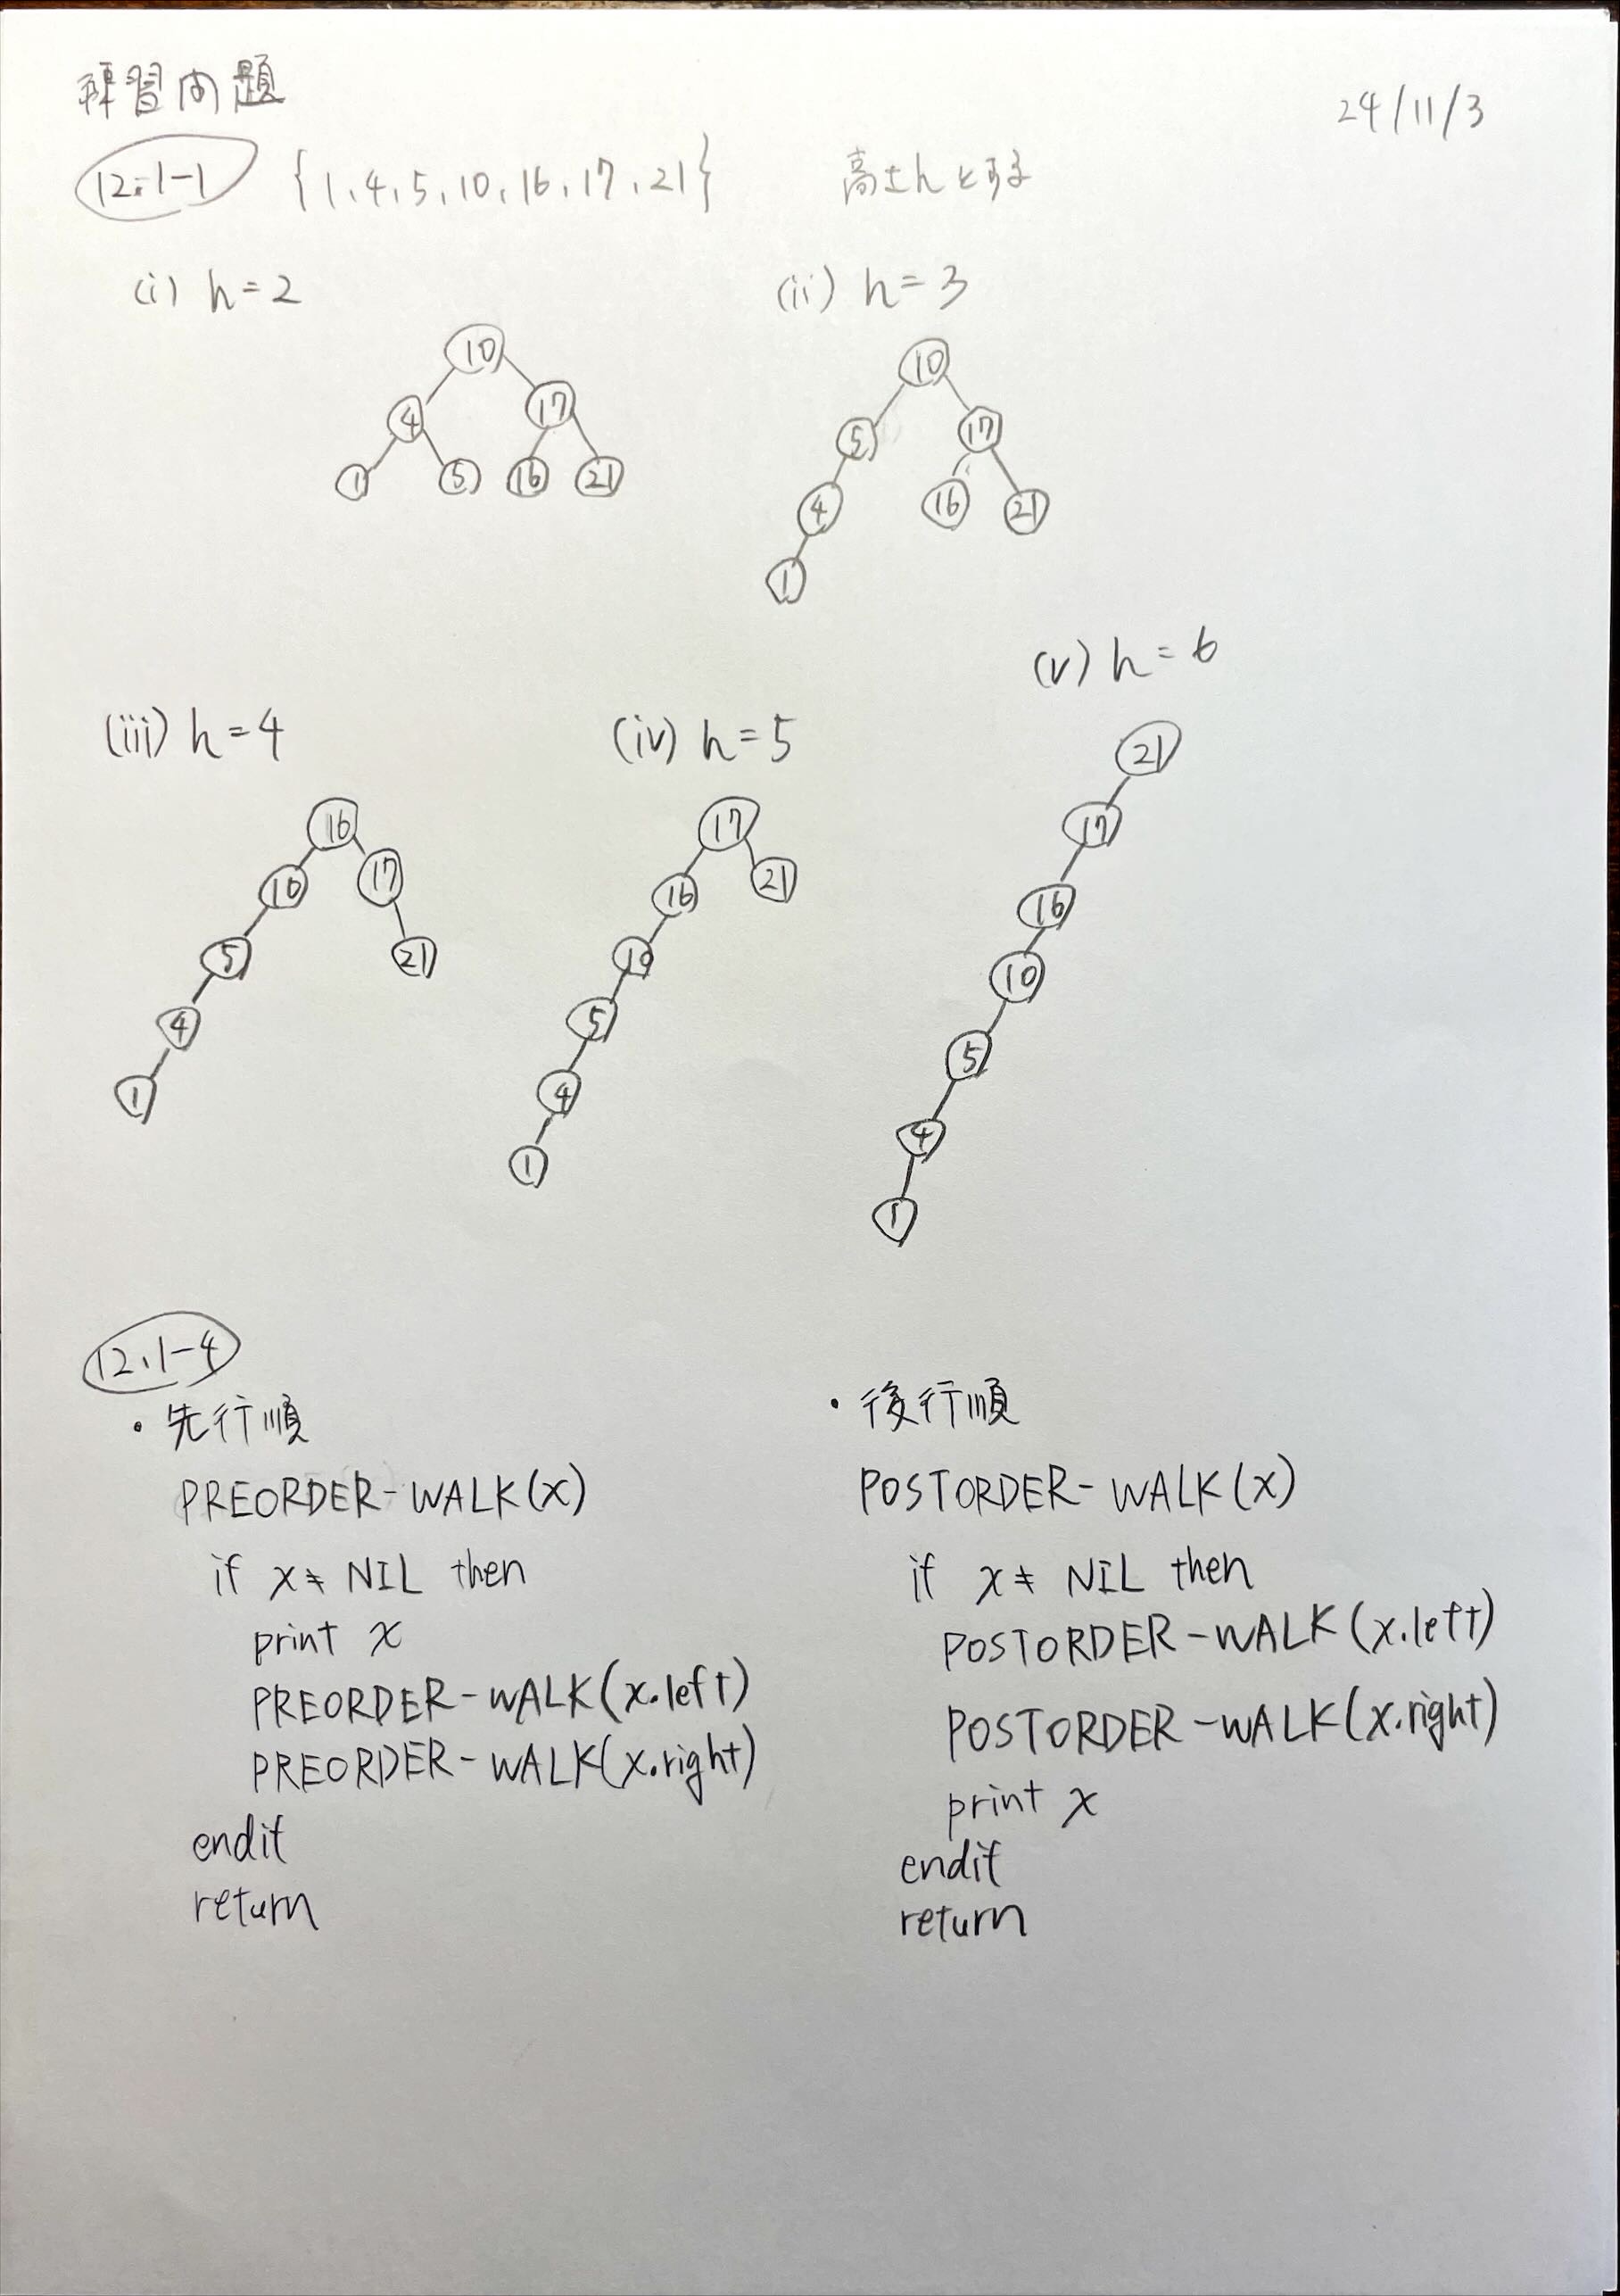 練習問題
24/11/3
12.1-1 {1,4,5,10,16,17,21} 高さhとする
(i) h=2
10
4 17
1 5 16 21
(ii) h=3
10
5 17
4 16 21
1
(iii) h=4
16
10 17
5 21
4
1
(iv) h=5
17
16 21
10
5
4
1
(v) h=6
21
17
16
10
5
4
1
12.1-4
・先行順
PREORDER-WALK(x)
if x≠NIL then
print x
PREORDER-WALK(x.left)
PREORDER-WALK(x.right)
endif
return
・後行順
POSTORDER-WALK(x)
if x≠NIL then
POSTORDER-WALK(x.left)
POSTORDER-WALK(x.right)
print x
endif
return